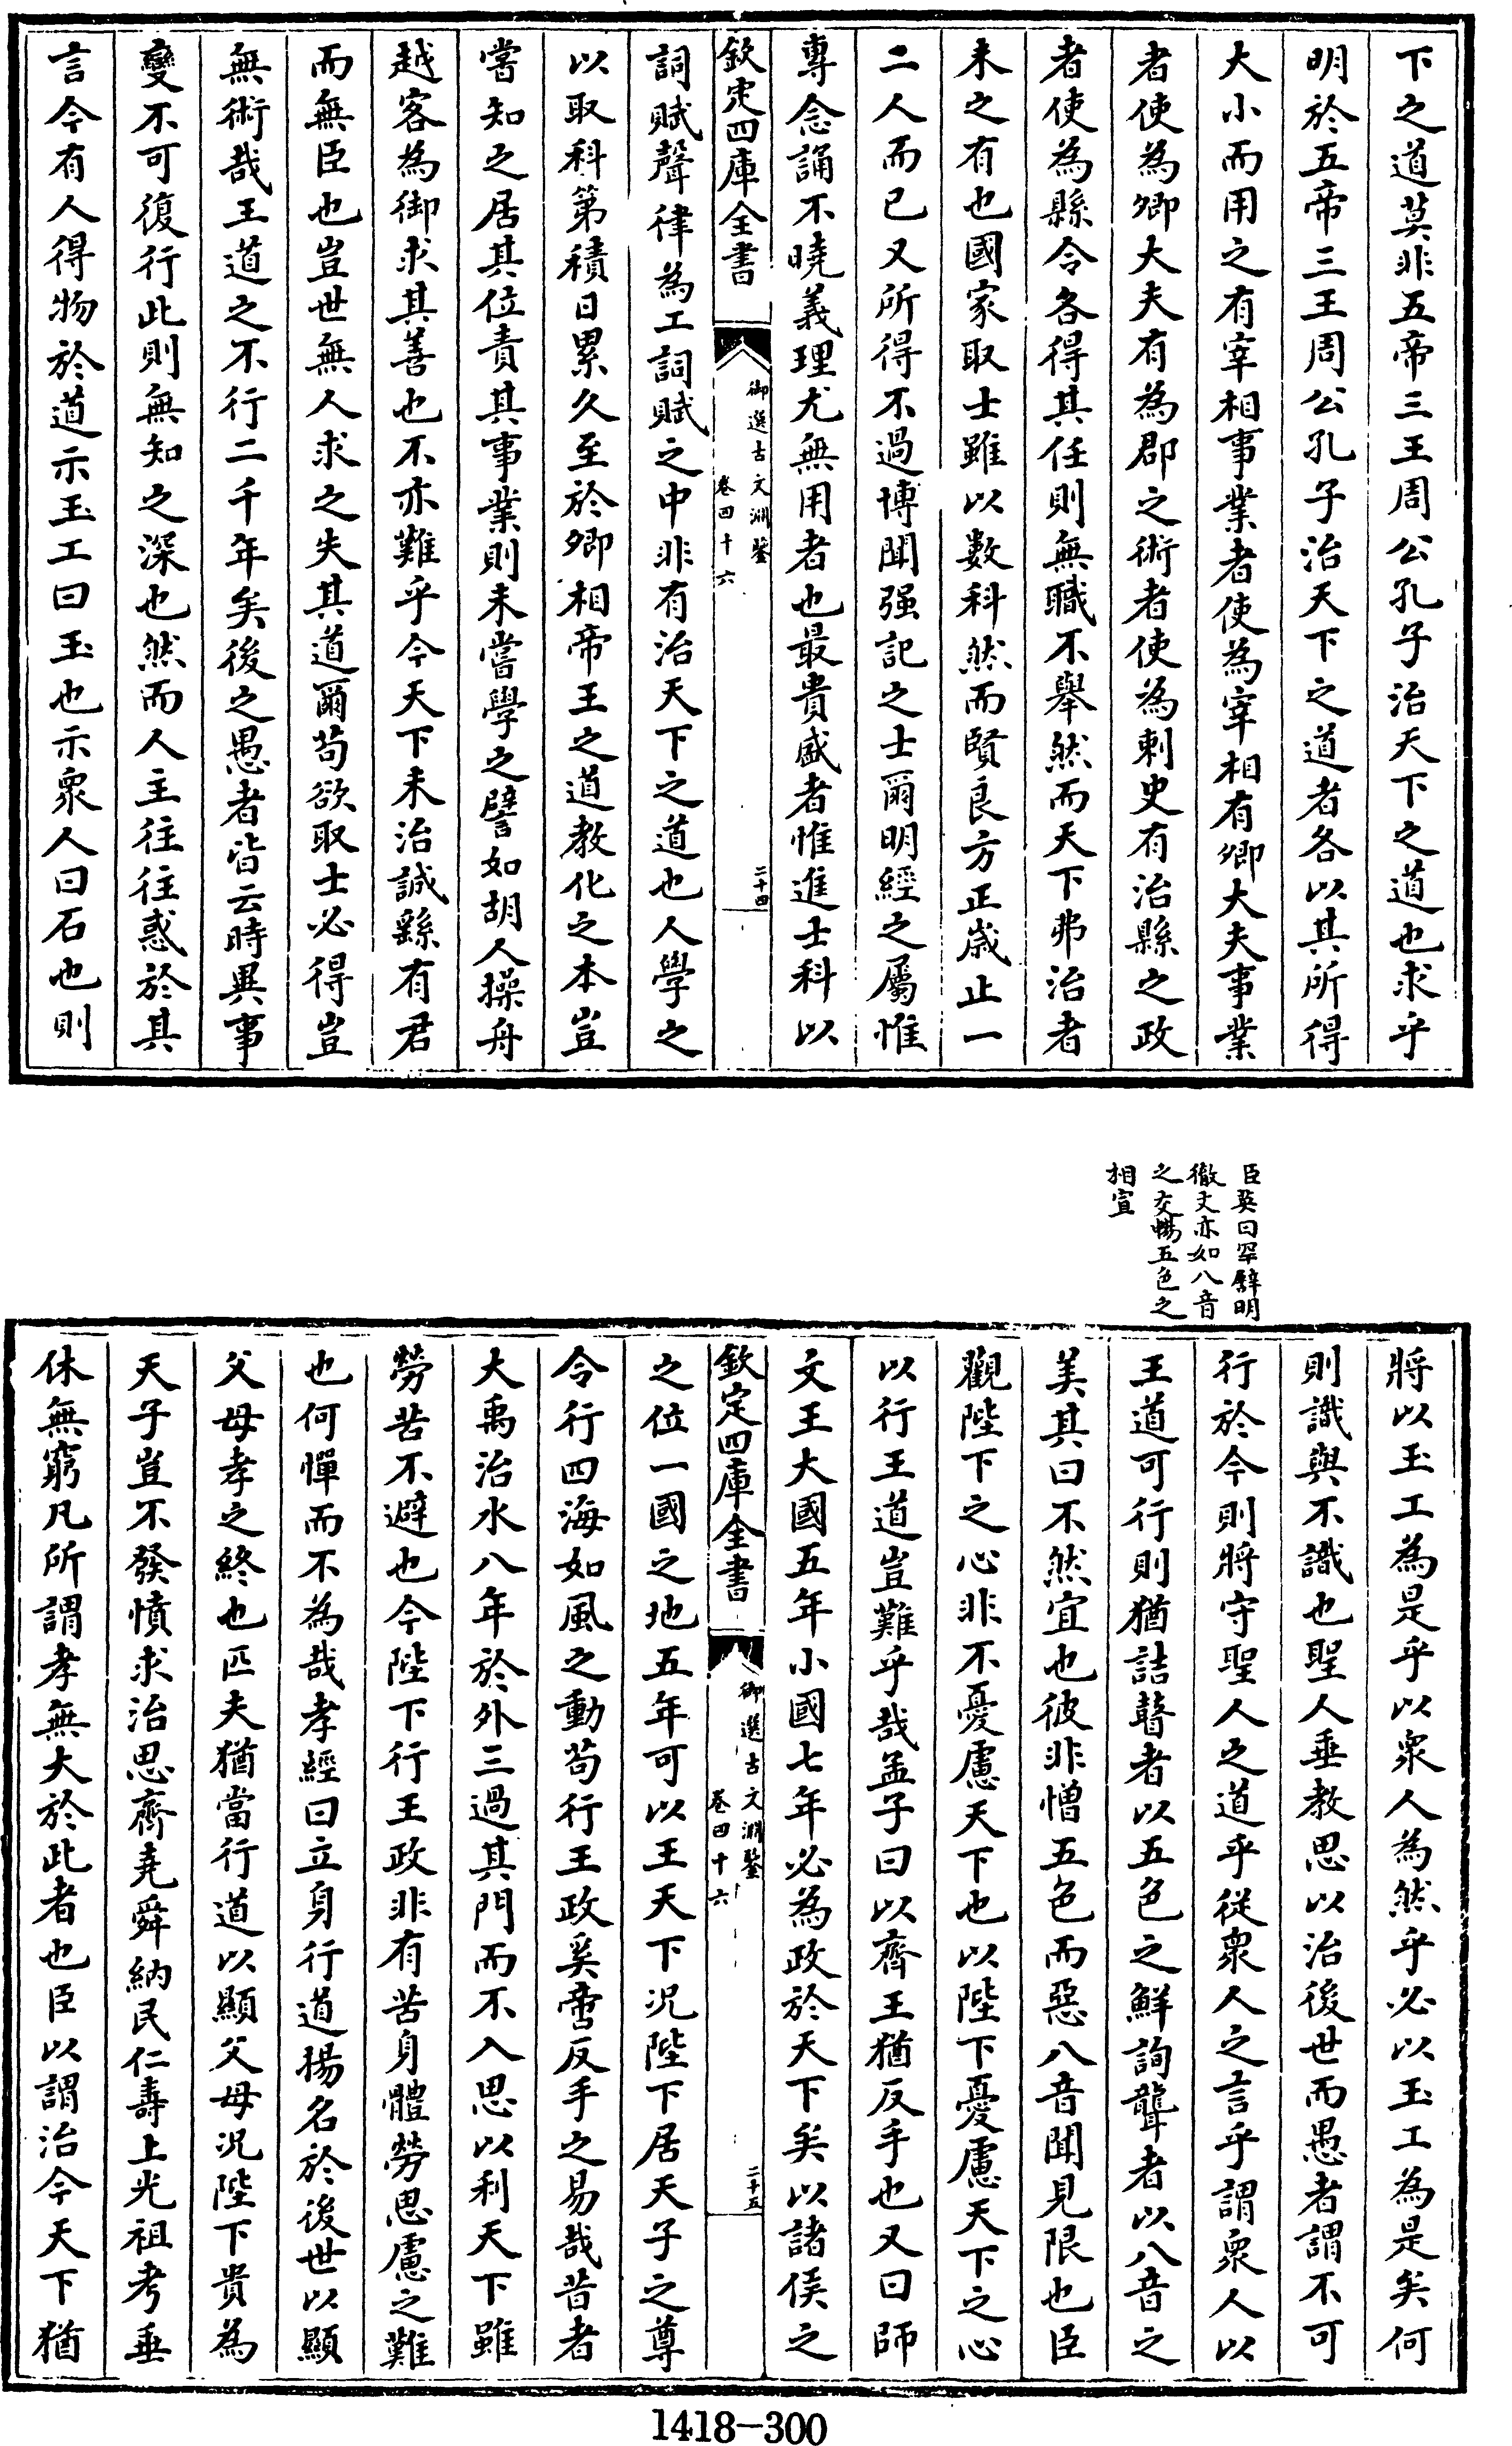 下之道莫非五帝三王周公孔子治天下之道也求乎
明於五帝三王周公孔子治天下之道者各以其所得
大小而用之有宰相事業者使為宰相有卿大夫事業
者使為卿大夫有為郡之術者使為刺史有治縣之政
者使為縣令各得其任則無職不舉然而天下弗治者
未之有也國家取士雖以數科然而賢良方正歲止一
二人而已又所得不過博聞强記之士爾明經之屬惟
專念誦不曉義理尤無用者也最貴盛者惟進士科以
欽定四庫全書
御選古文淵鑒
卷四十六
二十四
詞賦聲律為工詞賦之中非有治天下之道也人學之
以取科第積日累久至於卿相帝王之道教化之本豈
嘗知之居其位責其事業則未嘗學之譬如胡人操舟
越客為御求其善也不亦難乎今天下未治誠繇有君
而無臣也豈世無人求之失其道爾苟欲取士必得豈
無術哉王道之不行二千年矣後之愚者皆云時異事
變不可復行此則無知之深也然而人主往往惑於其
言今有人得物於道示玉工曰玉也示衆人曰石也則
臣英曰罕譬明
徹文亦如八音
之交暢五色之
相宣
將以玉工為是乎以衆人為然乎必以玉工為是矣何
則識與不識也聖人垂教思以治後世而愚者謂不可
行於今則將守聖人之道乎從衆人之言乎謂衆人以
王道可行則猶詰瞽者以五色之鮮詢聾者以八音之
美其曰不然宜也彼非憎五色而惡八音聞見限也臣
觀陛下之心非不憂慮天下也以陛下憂慮天下之心
以行王道豈難乎哉孟子曰以齊王猶反手也又曰師
文王大國五年小國七年必為政於天下矣以諸侯之
欽定四庫全書
御選古文淵鑒
卷四十六
二十五
之位一國之地五年可以王天下况陛下居天子之尊
令行四海如風之動苟行王政奚啻反手之易哉昔者
大禹治水八年於外三過其門而不入思以利天下雖
勞苦不避也今陛下行王政非有苦身體勞思慮之難
也何憚而不為哉孝經曰立身行道揚名於後世以顯
父母孝之終也匹夫猶當行道以顯父母况陛下貴為
天子豈不發憤求治思齊堯舜納民仁壽上光祖考垂
休無窮凡所謂孝無大於此者也臣以謂治今天下猶
1418-300